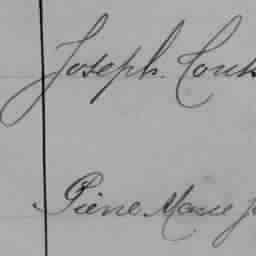 Joseph. Couk
Pierre Marie J